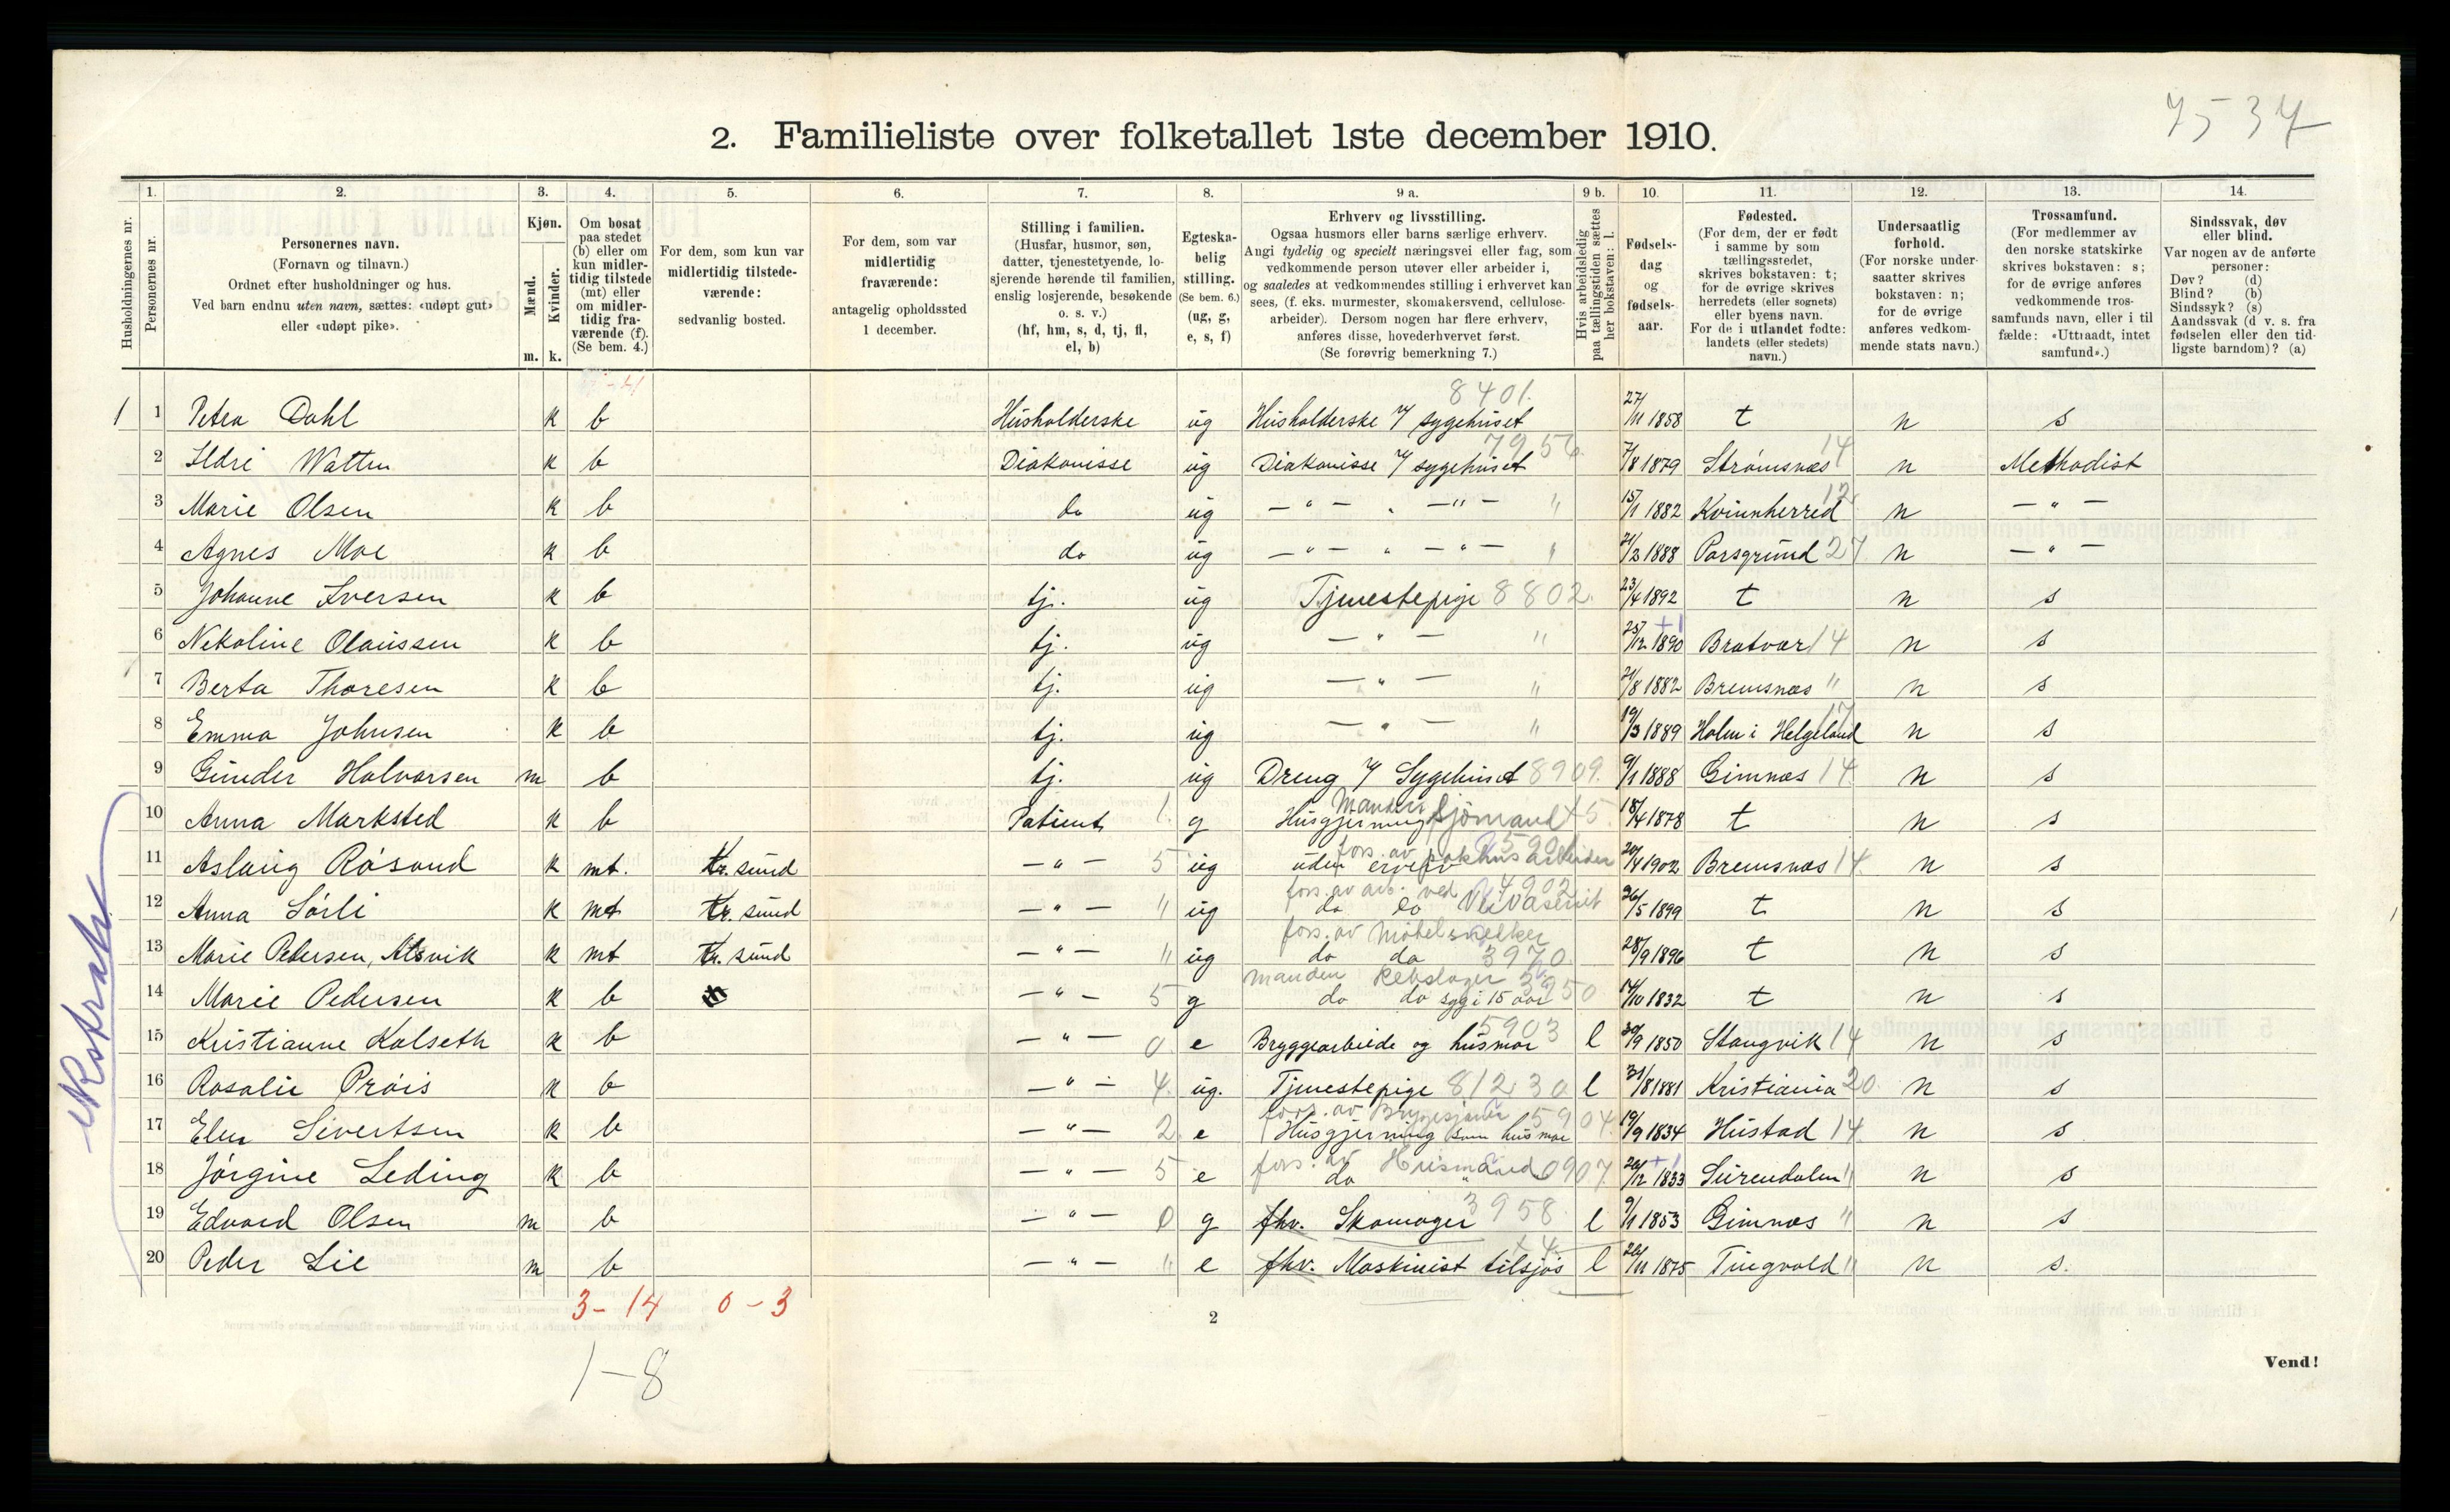 7537
2. Familieliste over folketallet 1ste december 1910.
1. 2. 3. 4. 5. 6. 7. 8. 9 a. 9 b. 10. 11. 12. 13. 14.
Husholdningernes nr.
Personernes nr.
Personernes navn.
(Fornavn og tilnavn.)
Ordnet efter husholdninger og hus.
Ved barn endnu uten navn, sættes: «udøpt gut»
eller «udøpt pike».
Kjøn.
Mænd.
Kvinder.
m. k.
Om bosat
paa stedet
(b) eller om
kun midler-
tidig tilstede
(mt) eller
om midler-
tidig fra-
værende (f).
(Se bem. 4.)
For dem, som kun var
midlertidig tilstede-
værende:
sedvanlig bosted.
For dem, som var
midlertidig
fraværende:
antagelig opholdssted
1 december.
Stilling i familien.
(Husfar, husmor, søn,
datter, tjenestetyende, lo-
sjerende hørende til familien,
enslig losjerende, besøkende
o. s. v.)
(hf, hm, s, d, tj, fl,
el, b)
Egteska-
belig
stilling.
(Se bem. 6.)
(ug, g,
e, s, f)
Erhverv og livsstilling.
Ogsaa husmors eller barns særlige erhverv.
Angi tydelig og specielt næringsvei eller fag, som
vedkommende person utøver eller arbeider i,
og saaledes at vedkommendes stilling i erhvervet kan
sees, (f. eks. murmester, skomakersvend, cellulose-
arbeider). Dersom nogen har flere erhverv,
anføres disse, hovederhvervet først.
(Se forøvrig bemerkning 7.)
Hvis arbeidsledig
paa tællingstiden sættes
her bokstaven: l.
Fødsels-
dag
og
fødsels-
aar.
Fødested.
(For dem, der er født
i samme by som
tællingsstedet,
skrives bokstaven: t;
for de øvrige skrives
herredets (eller sognets)
eller byens navn.
For de i utlandet fødte:
landets (eller stedets)
navn.)
Undersaatlig
forhold.
(For norske under-
saatter skrives
bokstaven: n;
for de øvrige
anføres vedkom-
mende stats navn.)
Trossamfund.
(For medlemmer av
den norske statskirke
skrives bokstaven: s;
for de øvrige anføres
vedkommende tros-
samfunds navn, eller i til
fælde: «Uttraadt, intet
samfund».)
Sindssvak, døv
eller blind.
Var nogen av de anførte
personer:
Døv? (d)
Blind? (b)
Sindssyk? (s)
Aandssvak (d v. s. fra
fødselen eller den tid-
ligste barndom)? (a)
8401.
1 1 Petra Dahl k b Husholderske ug Husholderske v/ sygehuset 27/11 1858 t n s
7956 14
2 Ildri Watten k b Diakonisse ug Diakonisse v/ sygehuset 7/8 1879 Strømsnæs n Methodist
3 Marie Olsen k b do ug — " — " — " — " 15/1 1882 Kvinnherred 12 n — " —
4 Agnes Moe k b do ug — " — " — " — " 21/2 1888 Porsgrund 27. n — " —
5 Johanne Iversen k b tj. ug Tjenestepige 8802. 23/4 1892 t n s
6 Nekoline Olaussen k b tj. ug — " — " 25/12 1890 +1 Bratvær 14 n s
7 Berta Thoresen k b tj. ug — " — " 21/8 1882 Bremsnæs " n s
8 Emma Johnsen k b tj. ug — " — " 19/3 1889 Holm i Helgeland 17 n s
9 Gunder Halvorsen m b tj. ug Dreng v/ Sygehuset 8909. 9/1 1888 Gimnæs 14 n s
10 Anna Marksted k b Patient 1. g Husgjerning Mandens Sjömand +5. 18/4 1878 t n s
11 Aslaug Rösand k mt. Kr. sund — " — 5 ug uden erverv fors. av pakhusarbeider 20/4 1902 Bremsnæs 14 n s
12 Anna Sörli k mt Kr. sund — " — " ug do do fors. av arb. ved Veivæsenet 26/5 1899 t n s
13 Marie Pedersen, Alsvik k mt Kr. sund — " — " ug do do fors. av Möbelsnekker 3970. 28/9 1896 t n s
14 Marie Pedersen k b — " — 5 g do do syg i 15 aar manden Rebslager 3250 14/10 1832 t n s
15 Kristianne Kolseth k b — " — 0 e Bryggearbeide og husmor 5903 l 30/9 1850 Stangvik 14 n s
16 Rosalie Pröis k b — " — 4. ug. Tjenestepige 812 30 l 31/8 1881 Kristiania 20. n s
17 Elen Sivertsen k b — " — 2 e Husgjerning som husmor fors. av Bryggesjauer 5904. 19/9 1834 Hustad 14 n s
18 Jörgine Leding k b — " — 5 e do " fors. av Husmand 0907. 26/12 1833 +1 Surendalen " n s
19 Edvard Olsen m b — " — 0 g fhv. Skomager 3958. l 9/1 1853 Gimnæs " n s
20 Peder Lie m b — " — " e fhv. Maskinist tilsjös +4. l 26/11 1875 Tingvold " n s.
3 - 14 0 - 3
2
1 - 8
Vend!